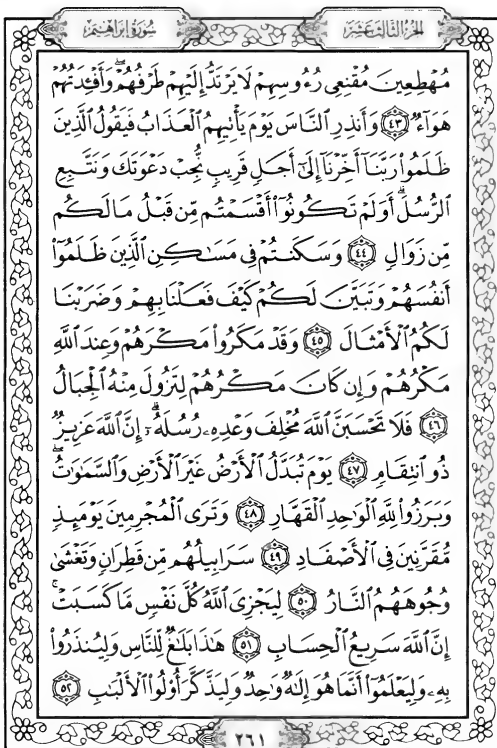 سُورَةُ إِبْرَاهِيمَ
الجُزْءُ الثَّالِثَ عَشَرَ
مُهْطِعِينَ مُقْنِعِى رُءُوسِهِمْ لَا يَرْتَدُّ إِلَيْهِمْ طَرْفُهُمْ ۖ وَأَفْـِٔدَتُهُمْ
هَوَآءٌ ﴿٤٣﴾ وَأَنذِرِ النَّاسَ يَوْمَ يَأْتِيهِمُ الْعَذَابُ فَيَقُولُ الَّذِينَ
ظَلَمُوا۟ رَبَّنَآ أَخِّرْنَآ إِلَىٰٓ أَجَلٍ قَرِيبٍ نُّجِبْ دَعْوَتَكَ وَنَتَّبِعِ
الرُّسُلَ ۗ أَوَلَمْ تَكُونُوٓا۟ أَقْسَمْتُم مِّن قَبْلُ مَا لَكُم
مِّن زَوَالٍ ﴿٤٤﴾ وَسَكَنتُمْ فِى مَسَـٰكِنِ الَّذِينَ ظَلَمُوٓا۟
أَنفُسَهُمْ وَتَبَيَّنَ لَكُمْ كَيْفَ فَعَلْنَا بِهِمْ وَضَرَبْنَا
لَكُمُ الْأَمْثَالَ ﴿٤٥﴾ وَقَدْ مَكَرُوا۟ مَكْرَهُمْ وَعِندَ اللَّهِ
مَكْرُهُمْ وَإِن كَانَ مَكْرُهُمْ لِتَزُولَ مِنْهُ الْجِبَالُ
﴿٤٦﴾ فَلَا تَحْسَبَنَّ اللَّهَ مُخْلِفَ وَعْدِهِۦ رُسُلَهُۥٓ ۗ إِنَّ اللَّهَ عَزِيزٌ
ذُو انتِقَامٍ ﴿٤٧﴾ يَوْمَ تُبَدَّلُ الْأَرْضُ غَيْرَ الْأَرْضِ وَالسَّمَـٰوَٰتُ ۖ
وَبَرَزُوا۟ لِلَّهِ الْوَٰحِدِ الْقَهَّارِ ﴿٤٨﴾ وَتَرَى الْمُجْرِمِينَ يَوْمَئِذٍ
مُّقَرَّنِينَ فِى الْأَصْفَادِ ﴿٤٩﴾ سَرَابِيلُهُم مِّن قَطِرَانٍ وَتَغْشَىٰ
وُجُوهَهُمُ النَّارُ ﴿٥٠﴾ لِيَجْزِىَ اللَّهُ كُلَّ نَفْسٍ مَّا كَسَبَتْ ۚ
إِنَّ اللَّهَ سَرِيعُ الْحِسَابِ ﴿٥١﴾ هَـٰذَا بَلَـٰغٌ لِّلنَّاسِ وَلِيُنذَرُوا۟
بِهِۦ وَلِيَعْلَمُوٓا۟ أَنَّمَا هُوَ إِلَـٰهٌ وَٰحِدٌ وَلِيَذَّكَّرَ أُو۟لُوا۟ الْأَلْبَـٰبِ ﴿٥٢﴾
٢٦١